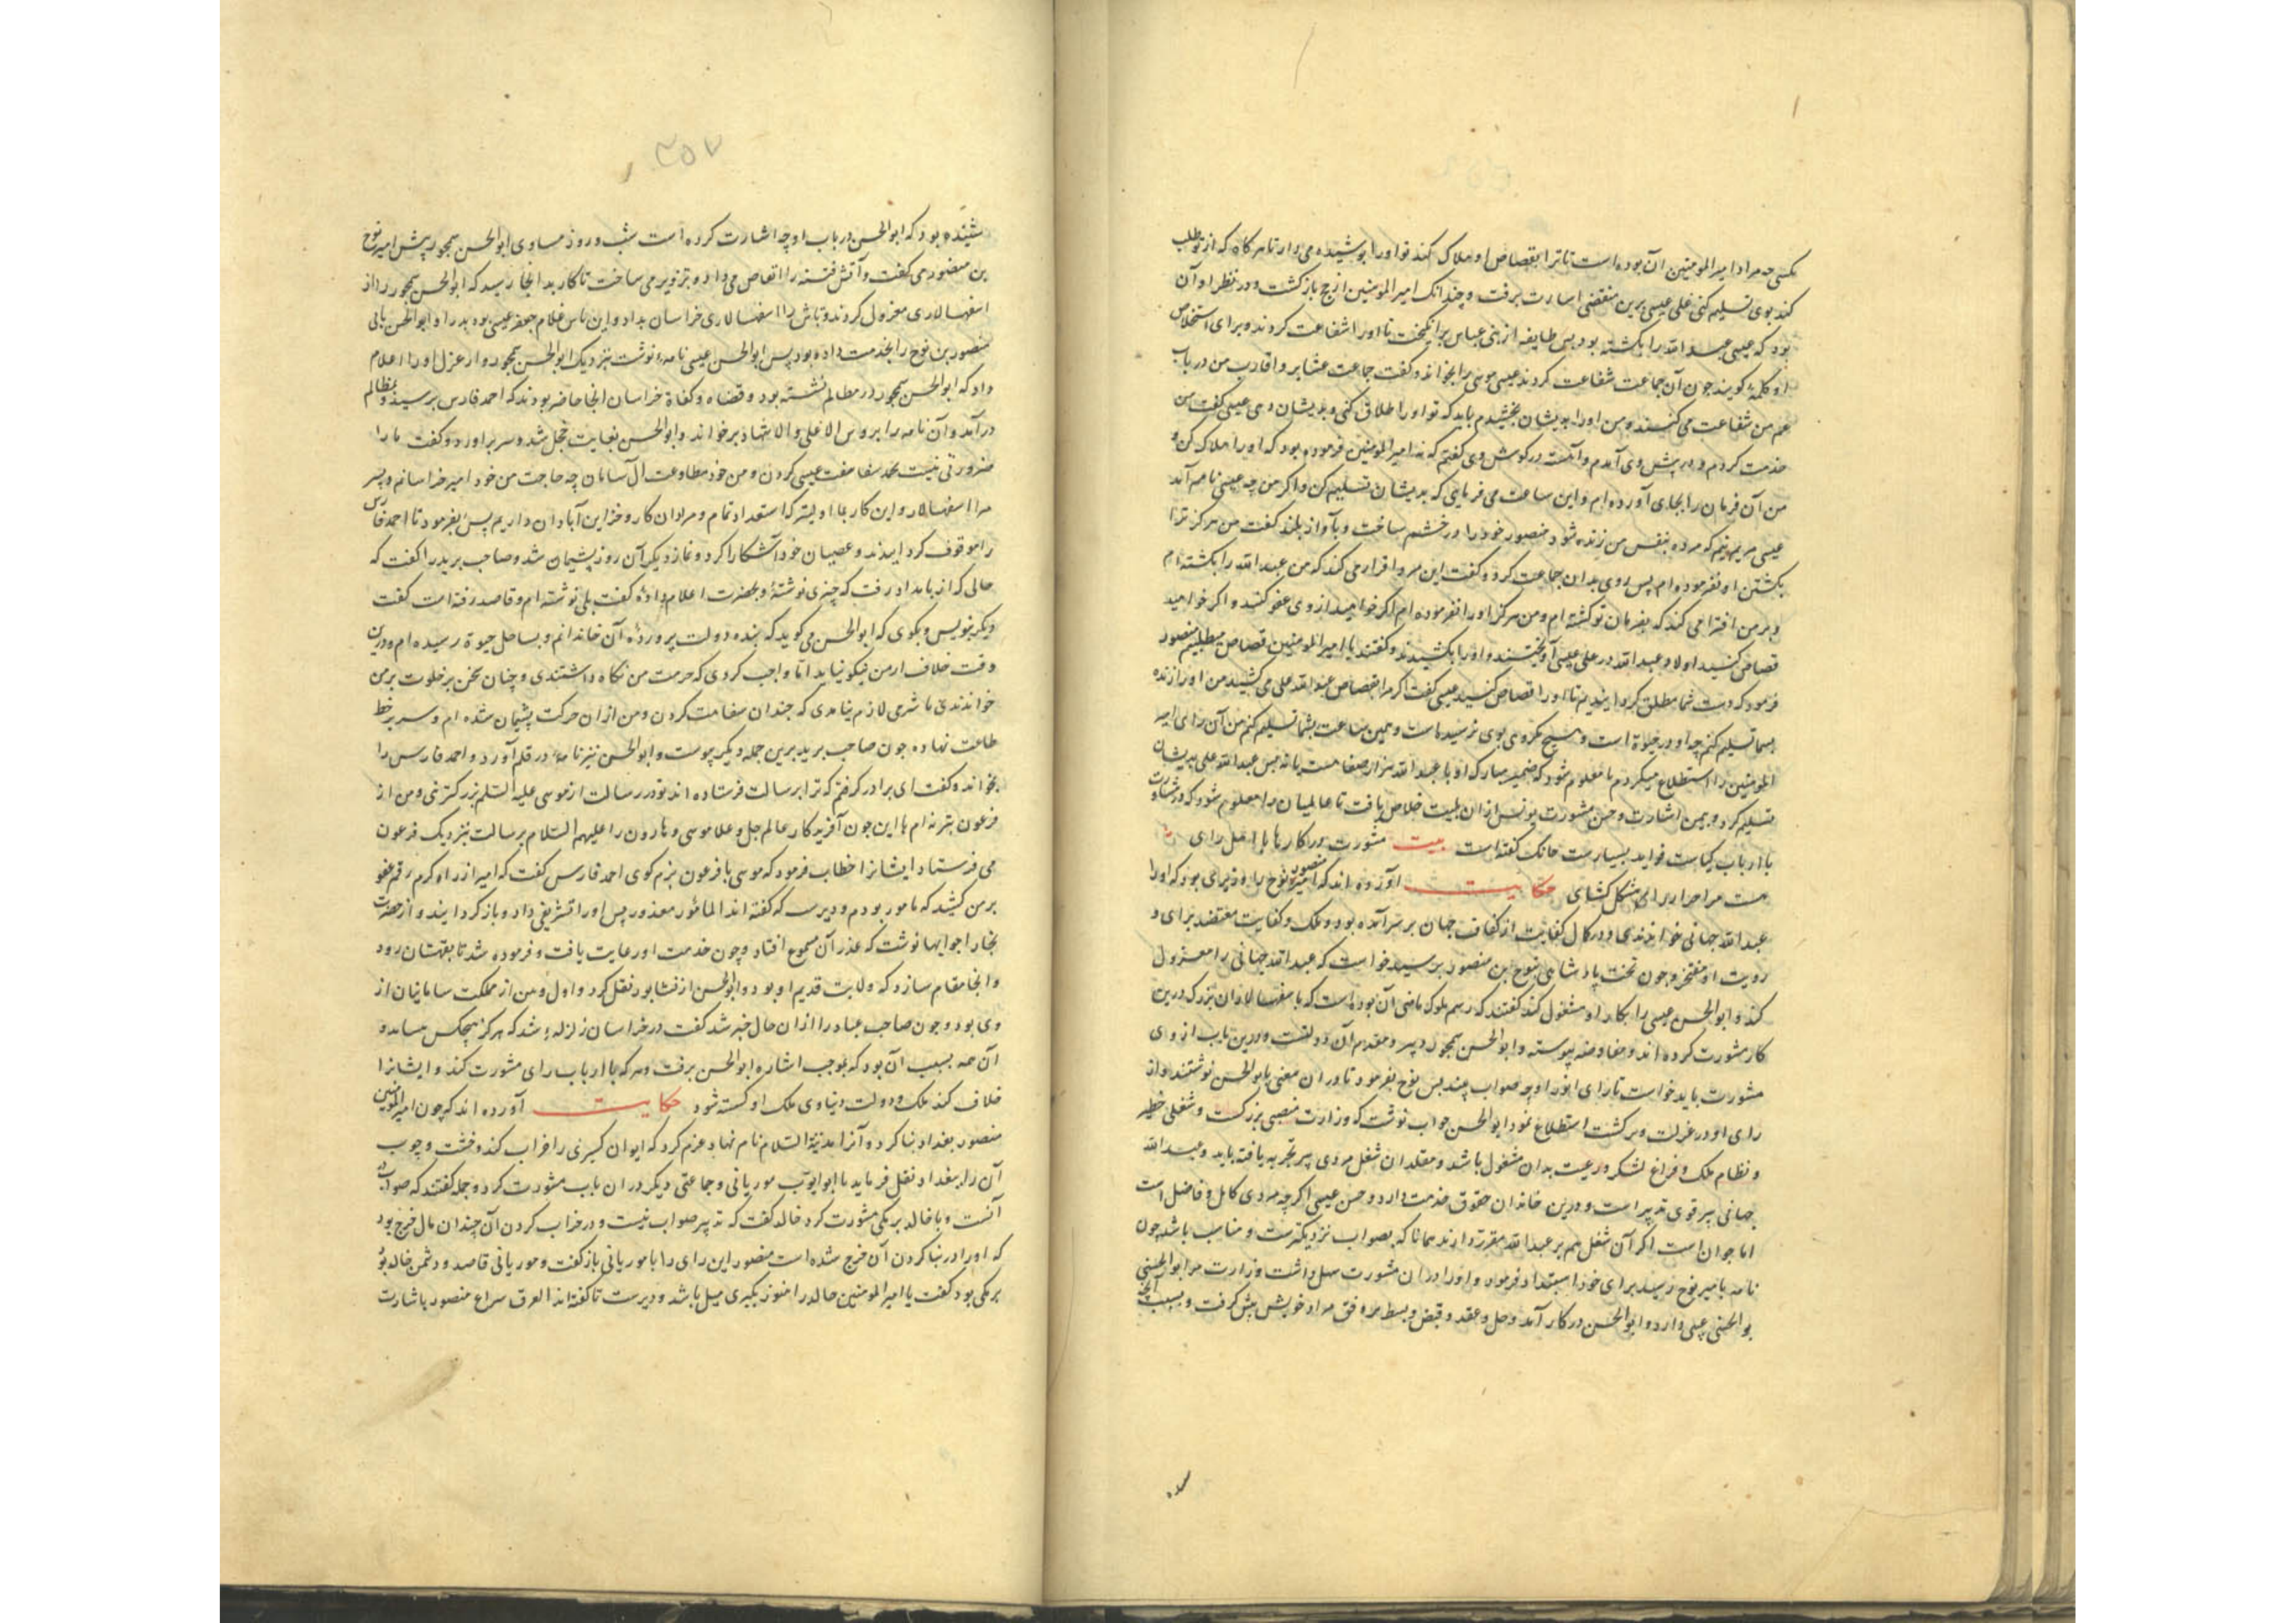 مکن چه مراد امیر المومنین آن بوده است تا ترا بقصاص او هلاک کند تو او را پوشیده می دار تا هر کاه که از تو طلب
کند بوی تسلیم کنی علی عیسی برین مقتضی اشارت برفت و چندانک امیر المومنین از حج باز کشت و در نظر او آن
بود که عیسی عبد الله را بکشته بود پس طایفه از بنی عباس برانکیخت تا او را شفاعت کردند و برای استخلاص
او کلمه کویند چون آن جماعت شفاعت کردند عیسی موسی را بخواند و کفت جماعت عشایر و اقارب من در باب
عم من شفاعت می کنند و من او را بویشان بخشیدم باید که تو او را اطلاق کنی و بدیشان دهی عیسی کفت من
خدمت کردم و در پیش وی آمدم و آهسته در کوش وی کفتم که نه امیر المومنین فرموده بود که او را هلاک کن و
من آن فرمان را بجای آورده ام و این ساعت می فرمایی که بدیشان تسلیم کن و اکر من چه عیسی نامم اما
عیسی مریم نیم که مرده بنفس من زنده شود منصور خود را در خشم ساخت و بآواز بلند کفت من هرکز ترا
بکشتن او نفرموده ام پس روی بدان جماعت کرد و کفت این مرد اقرار می کند که من عبد الله را بکشته ام
و بر من افترا می کند که بفرمان تو کشته ام و من هرکز او را نفرموده ام اکر خواهید از وی عفو کنید و اکر خواهید
قصاص کنید اولاد عبد الله در علی عیسی آویختند و او را بکشیدند و کفتند یا امیر المومنین قصاص میطلبیم منصور
فرمود که دست شما مطلق کردانیدیم تا او را قصاص کنید عیسی کفت اکر مرا بقصاص عبد الله علی می کشید من او را زنده
بشما تسلیم کنم چه او در حیوة است و هیچ مکروهی بوی نرسیده است و همین ساعت بشما تسلیم کنم من آن رای امیر
المومنین را استطلاع میکردم تا معلوم شود که ضمیر مبارک او با عبد الله بر قرار صفا هست یا نه پس عبد الله علی بدیشان
تسلیم کرد و بیمن اشارت و حسن مشورت یونس از ان بلیت خلاص یافت تا عالمیان را معلوم شود که در مشاورت
با ارباب کیاست فواید بسیارست چنانک کفته است بیت مشورت در کارها با اهل رای
هست مر احرار را مشکل کشای حکایت آورده اند که امیر منصور نوح را وزیری بود که او را
عبد الله جیهانی خواندندی و در کمال کفایت از کفاة جهان بر سر آمده بود و ملک و کفایت معتضد برای و
رویت او مفتخر و چون تخت پادشاهی بنوح بن منصور برسید خواست که عبد الله جیهانی را معزول
کند و ابو الحسن عیسی را بکار او مشغول کند کفتند که رسم ملوک ماضی آن بوده است که با سفهسالاران بزرک درین
کار مشورت کرده اند و مفاوضه پیوسته و ابو الحسن سمجور پیر و مقدم آن دولتست و درین باب از وی
مشورت باید خواست تا رای انور او چه صواب بیند پس نوح بفرمود تا در ان معنی بابو الحسن نوشتند و از
رای او در عزلت و برکشت استطلاع نمود ابو الحسن جواب نوشت که وزارت منصبی بزرکست و شغلی خطیر
و نظام ملک و فراغ لشکر و رعیت بدان مشغول باشد و مقلد ان شغل مردی پیر تجربه یافته باید و عبد الله
جیهانی پیر قوی تدبیر است و درین خاندان حقوق خدمت دارد و حسن عیسی اکرچه مردی کامل و فاضل است
اما جوان است اکر آن شغل هم بر عبد الله مقرر دارند همانا که بصواب نزدیکترست و مناسب باشد چون
نامه بامیر نوح رسید برای خود استبداد فرمود و او را در ان مشورت سهل داشت وزارت مر ابو الحسن
بو الحسن عیسی داد و ابو الحسن در کار آمد و حل و عقد و قبض و بسط بر وفق مراد خویش پیش کرفت و بسبب آنچه
شنیده
۲۵۷
شنیده بود که ابو الحسن در باب او چه اشارت کرده است شب و روز مساوی ابو الحسن سمجور پیش امیر نوح
بن منصور می کفت و آتش فتنه را التهاب می داد و تزویر می ساخت تا کار بدانجا رسید که ابو الحسن سمجور را از
اسفهسالاری معزول کردند و تاش را اسفهسالاری خراسان بداد و این تاش غلام جعفر عیسی بود پدر او ابو الحسن بابی
منصور بن نوح را بخدمت داده بود پس ابو الحسن عیسی نامه نوشت بنزدیک ابو الحسن سمجور و از عزل او را اعلام
داد که ابو الحسن سمجور در مظالم نشسته بود و قضاه و کفاة خراسان انجا حاضر بودند که احمد فارس برسید و بمظالم
درآمد و آن نامه را بر روس الاعلی و الاشهاد برخواند و ابو الحسن بغایت خجل شد و سر براورد و کفت ما را
ضرورتی نیست بحمد سفاهت عیسی کردن و من خود مطاوعت آل سامان چه حاجت من خود امیر خراسانم و پسر
مرا اسفهسالار و این کار بما اولیتر که استعداد تمام و مردان کار و خزاین آبادان داریم پس بفرمود تا احمد فارس
را موقوف کردانیدند و عصیان خود آشکارا کرد و نماز دیکر آن روز پشیمان شد و صاحب برید را کفت که
حالی که از بامداد رفت که چیزی نوشتۀ و بحضرت اعلام دادۀ کفت بلی نوشته ام و قاصد رفته است کفت
دیکر بنویس و بکوی که ابو الحسن می کوید که بنده دولت پروردۀ آن خاندانم و بساحل حیوة رسیده ام و درین
وقت خلاف از من نیکو نیاید اما واجب کردی که حرمت من نکاه داشتندی و چنان سخن بر خلوت بر من
خواندندی تا شرمی لازم نیامدی که چندان سفاهت کردن و من از ان حرکت پشیمان شده ام و سر بر خط
طاعت نهاده چون صاحب برید برین جمله دیکر پیوست و ابو الحسن نیز نامۀ در قلم آورد و احمد فارس را
بخواند و کفت ای برادر کرفتم که ترا برسالت فرستاده اند تو در رسالت از موسی علیه السلم بزرکتر نئی و من از
فرعون بتر نه ام با این چون آفریدکار عالم جل و علا موسی و هارون را علیهم السلام برسالت بنزدیک فرعون
می فرستاد ایشانرا خطاب فرمود که موسی با فرعون بنرم کوی احمد فارس کفت که امیر از راه کرم رقم عفو
بر من کشید که مامور بودم و دیرست که کفته اند المامور معذور پس او را تشریفی داد و باز کردانید و از حضرت
بخارا جوابها نوشت که عذر آن مسموع افتاد و چون خدمت او رعایت یافت و فرموده شد تا بقهستان رود
و انجا مقام سازد که ولایت قدیم او بود و ابو الحسن از نشابور نقل کرد و اول وهن از مملکت سامانیان از
وی بود و چون صاحب عباد را از ان حال خبر شد کفت در خراسان زلزلۀ شد که هرکز هیچکس
آن همه بسبب آن بود که بموجب اشاره ابو الحسن نرفت و هر که با ارباب رای مشورت کند و ایشانرا
خلاف کند ملک و دولت دنیاوی ملک او کسسته شود حکایت آورده اند که چون امیر المومنین
منصور بغداد بنا کرد و آنرا مدینة السلام نام نهاد عزم کرد که ایوان کسری را خراب کند و خشت و چوب
آن را ببغداد نقل فرماید با ابو ایوب موریانی و جماعتی دیکر در ان باب مشورت کرد و جمله کفتند که صواب
آنست و با خالد برمکی مشورت کرد خالد کفت که تدبیر صواب نیست و در خراب کردن آن چندان مال خرج بود
که او را در بنا کردن آن خرج شده است منصور این رای را با موریانی باز کفت و موریانی قاصد و دشمن خالد بود
برمکی بود کفت یا امیر المومنین خالد را هنوز بکبری میل باشد و دیرست تا کفته اند العرق سراع منصور باشارت